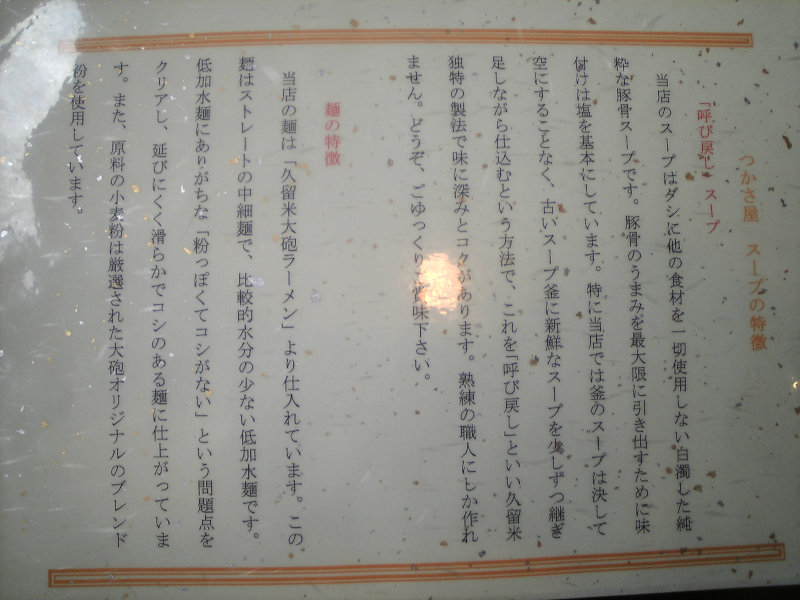 つかさ屋 スープの特徴
「呼び戻し」スープ
当店のスープはダシに他の食材を一切使用しない白濁した純
粋な豚骨スープです。豚骨のうまみを最大限に引き出すために味
付けは塩を基本にしています。特に当店では釜のスープは決して
空にすることなく、古いスープ釜に新鮮なスープを少しずつ継ぎ
足しながら仕込むという方法で、これを「呼び戻し」といい久留米
独特の製法で味に深みとコクがあります。熟練の職人にしか作れ
ません。どうぞ、ごゆっくりご賞味下さい。
麺の特徴
当店の麺は「久留米大砲ラーメン」より仕入れています。この
麺はストレートの中細麺で、比較的水分の少ない低加水麺です。
低加水麺にありがちな「粉っぽくてコシがない」という問題点を
クリアし、延びにくく滑らかでコシのある麺に仕上がっていま
す。また、原料の小麦粉は厳選された大砲オリジナルのブレンド
粉を使用しています。